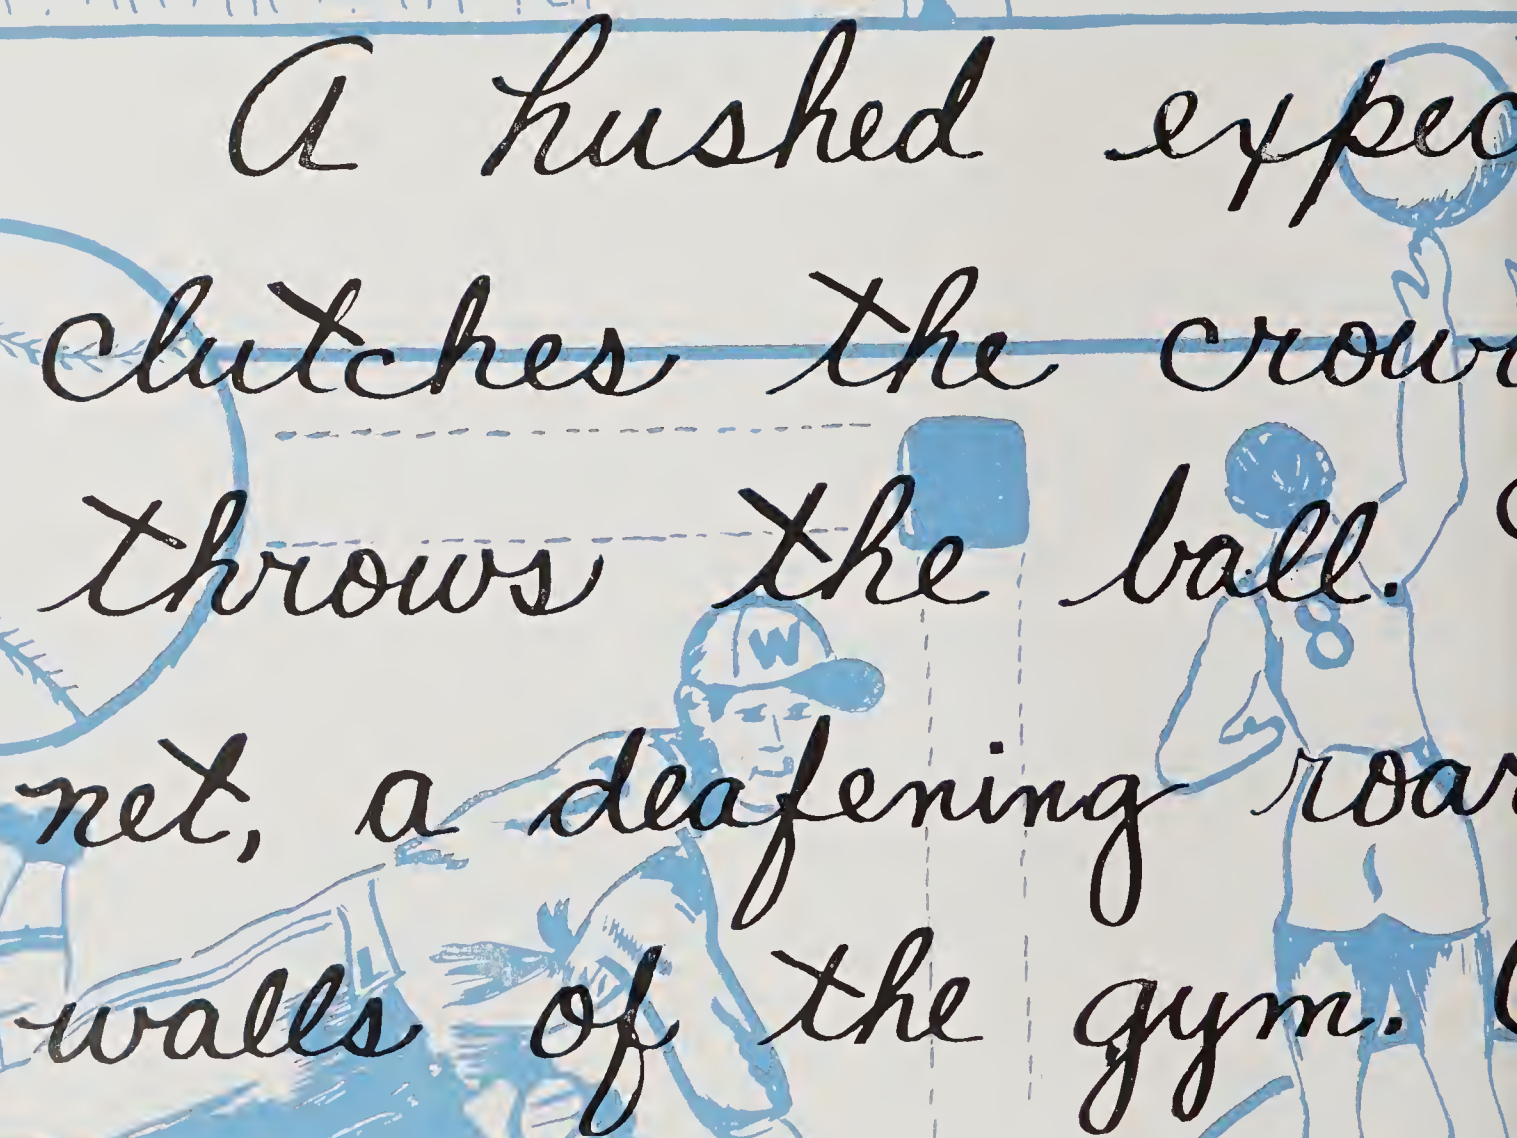 A hushed expec
clutches the crow
throws the ball.
W
8
net, a deafening roar
walls of the gym.